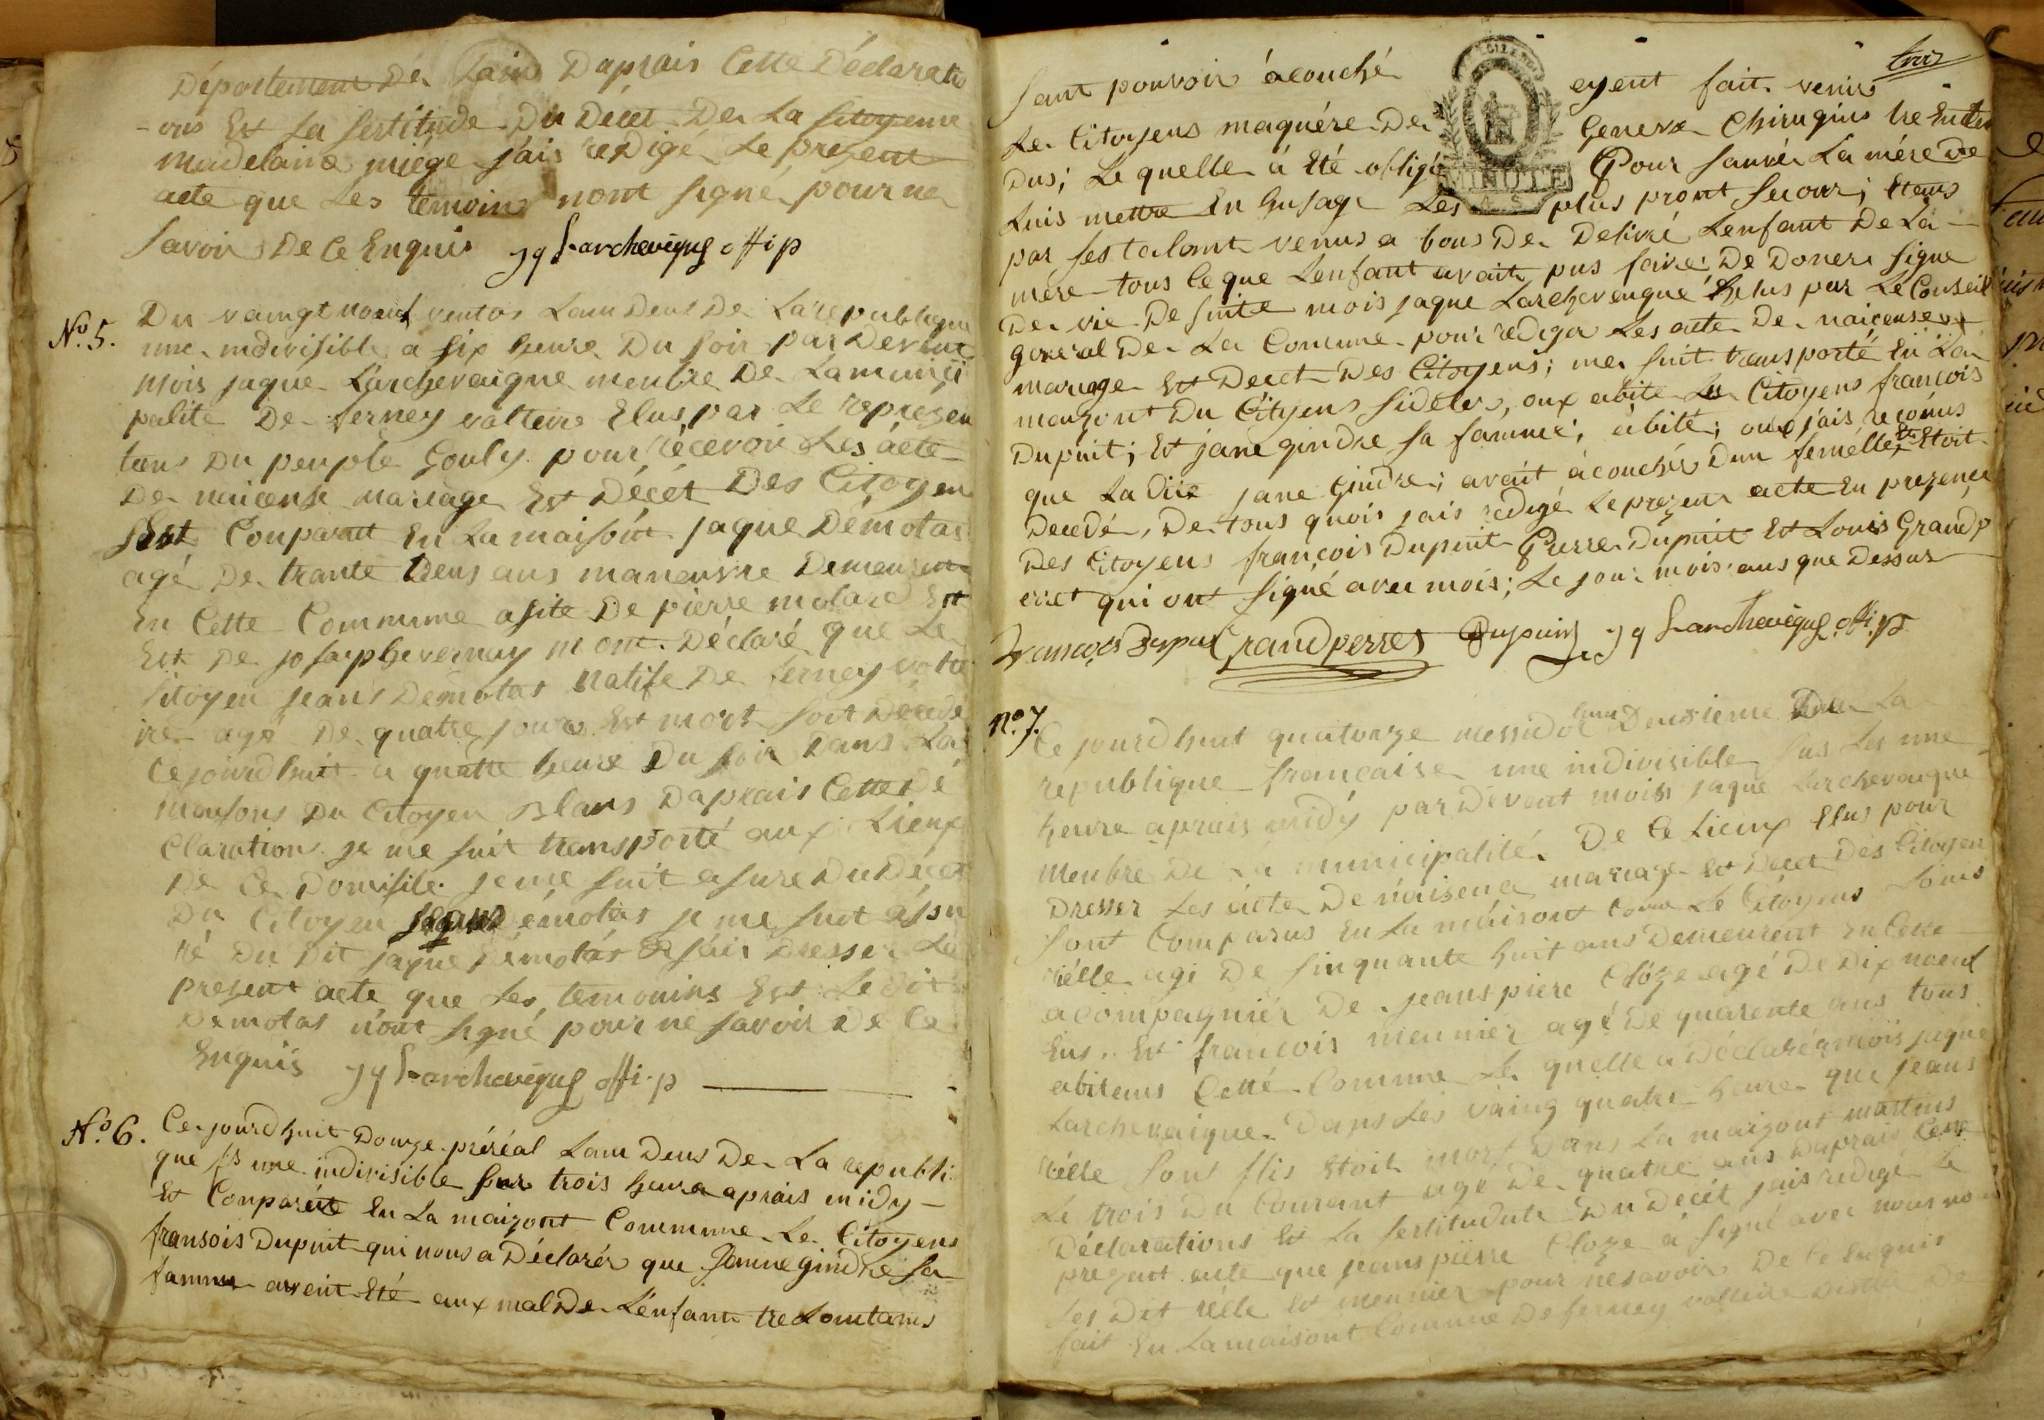 Département De Lain Daprais Cette Déclarati
-ons Et La sertitude Du Décet De La Citoyenne
Madelaine miége jais redigé Le present
acte que Les temoins nont signé pour ne
savoir De Ce Enquis jq Larchevêque offi p
No. 5. Du vaingt noeuf ventos Lann Deus De La republique
une indivisible a six heure Du soir par Devent
mois jaque Larchevaique menbre De La munici
palité De ferney voltere Elus par Le reprezen
tans Du peuple Gouly pour récevoir Les acte
De naicense mariage Et Décét Des Citoyen
Est Conparut En La maisont jaque Démotas
agé De trante Deus ans maneuvre Demeurent
En Cette Commune asité De pierre molard Et
Et De josaiph Gevernay mont Déclaré que Le
Citoyen jeans Démotas natife De ferney volte
re agé De quatre jours Est mort soit Décédé
Ce jourdhuit a quatre heure Du soir Dans La
Maisons Du Citoyen Blans Daprais Cette Dé
Claration je me suit transporté aux Lieux
De Ce Domisile je me suit asuré Du Décet
Du Citoyen Démotas je me suit assu
ré Du Dit jaque Démotas jais Dresser Le
present acte que Les temouins Est Le Dit
Démotas n'ont signé pour ne savoir De Ce
Enquis jq Larchevêque offi. p
No. 6. Ce jourdhuit Douze préréal Lann Deus De La republi
que fse une indivisible sur trois heure aprais midy
Et Conparut En La maizont Commune Le Citoyens
fransois Dupuit qui nous a Déclarér que Janne gindre sa
famme avent Eté aux mal De L'enfant tre Lontans
trois
sant pouvoir acouché eyent fait venir
Le Citoyens maquére De Geneve Chirugins tre Enten
Dus; Le quelle à Eté obligé Pour sauvér La mére De
Luis mettre En husage Les plus pront secour; Etans
par ses talant venus a bous De Delivré Lenfant De La
mére tous Ce que Lenfant avait pus faire De Doner signe
De vie De suite mois jaque Larchevengué Helus par Le Conseil
general De La Comune pour rediger Les acte De naicense
mariage Et Decet Des Citoyens; me suit transporté En La
maizont Du Citoyens fidéles, oux abite Le Citoyens francois
Dupuit; Et jane gindre sa famme, abité; oux jais reconus
que La Dite jane Gindre; avait acouchér Dun femélle Etoit
Decedé, De tous quois jais redigé Le prezent acte En prezence
Des Citoyens françois Dupuit Pierre Dupuit Et Louis Grandp
erret qui ont signé avec mois; Le jour mois ans que Dessus
François Dupuit Grandperret Dupuis jq Larchevêque offi. p
No. 7. Ce jourdhuit quatorze messidor Lann Deusieme De La
republique francaise une indivisible Sus Les une
heure aprais midy par Devent mois jaque Larchevaique
Menbre De La municipalité De Ce Lieux Elus pour
Dresser Les acte De naisence mariage Et Decet Des Citoyen
sont Comparus En La maisont Come Le Citoyens Louis
rélle agé De sinquante huit ans Demeurent En Cette
acompagniér De jeans piere Cloze agé De Dix noeuf
Ens. Et francois meunier agé De quarente ans tous
abitens Cette Comune Le quelle a Déclaré a mois jaque
Larchevaique Dans Les vaing quatre heure que jeans
rélle sont fils Etoit mort Dans La maizont martins
Le trois Du Courant agé De quatre ans Daprais Cette
Déclarations Et La sertitudute Du Décét jais redigé Le
prezent acte que jeans pierre Cloze à signé avec nous no
Les Dit rélle Et meunier pour nesavoir De Ce Enquis
fait En La maisont Comune De ferney voltere